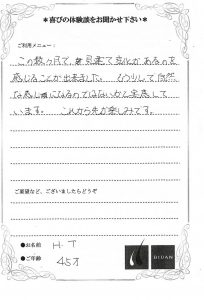 ＊喜びの体験談をお聞かせ下さい＊
ご利用メニュー：
この数ヶ月で、見違えて変化があるのを
感じることが出来ました。もう少しで自然
な感じになるのではないかと実感して
います。これから先が楽しみです。
ご要望など、ございましたらどうぞ
●お名前 H.T
●ご年齢 45才
BIDAN